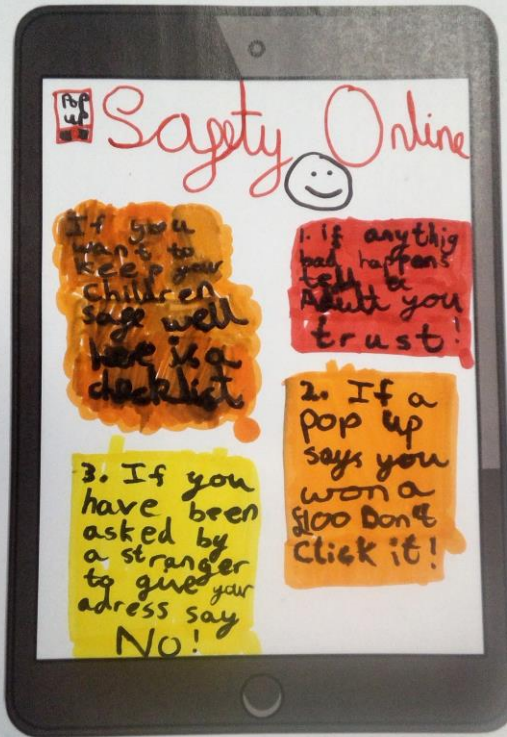 Pop
up
Safety Online
If you
want to
keep your
children
safe well
here is a
checklist
1. if anythig
bad happens
tell a
Adult you
trust!
2. If a
pop up
says you
won a
£100 Don't
Click it!
3. If you
have been
asked by
a stranger
to give your
adress say
No!